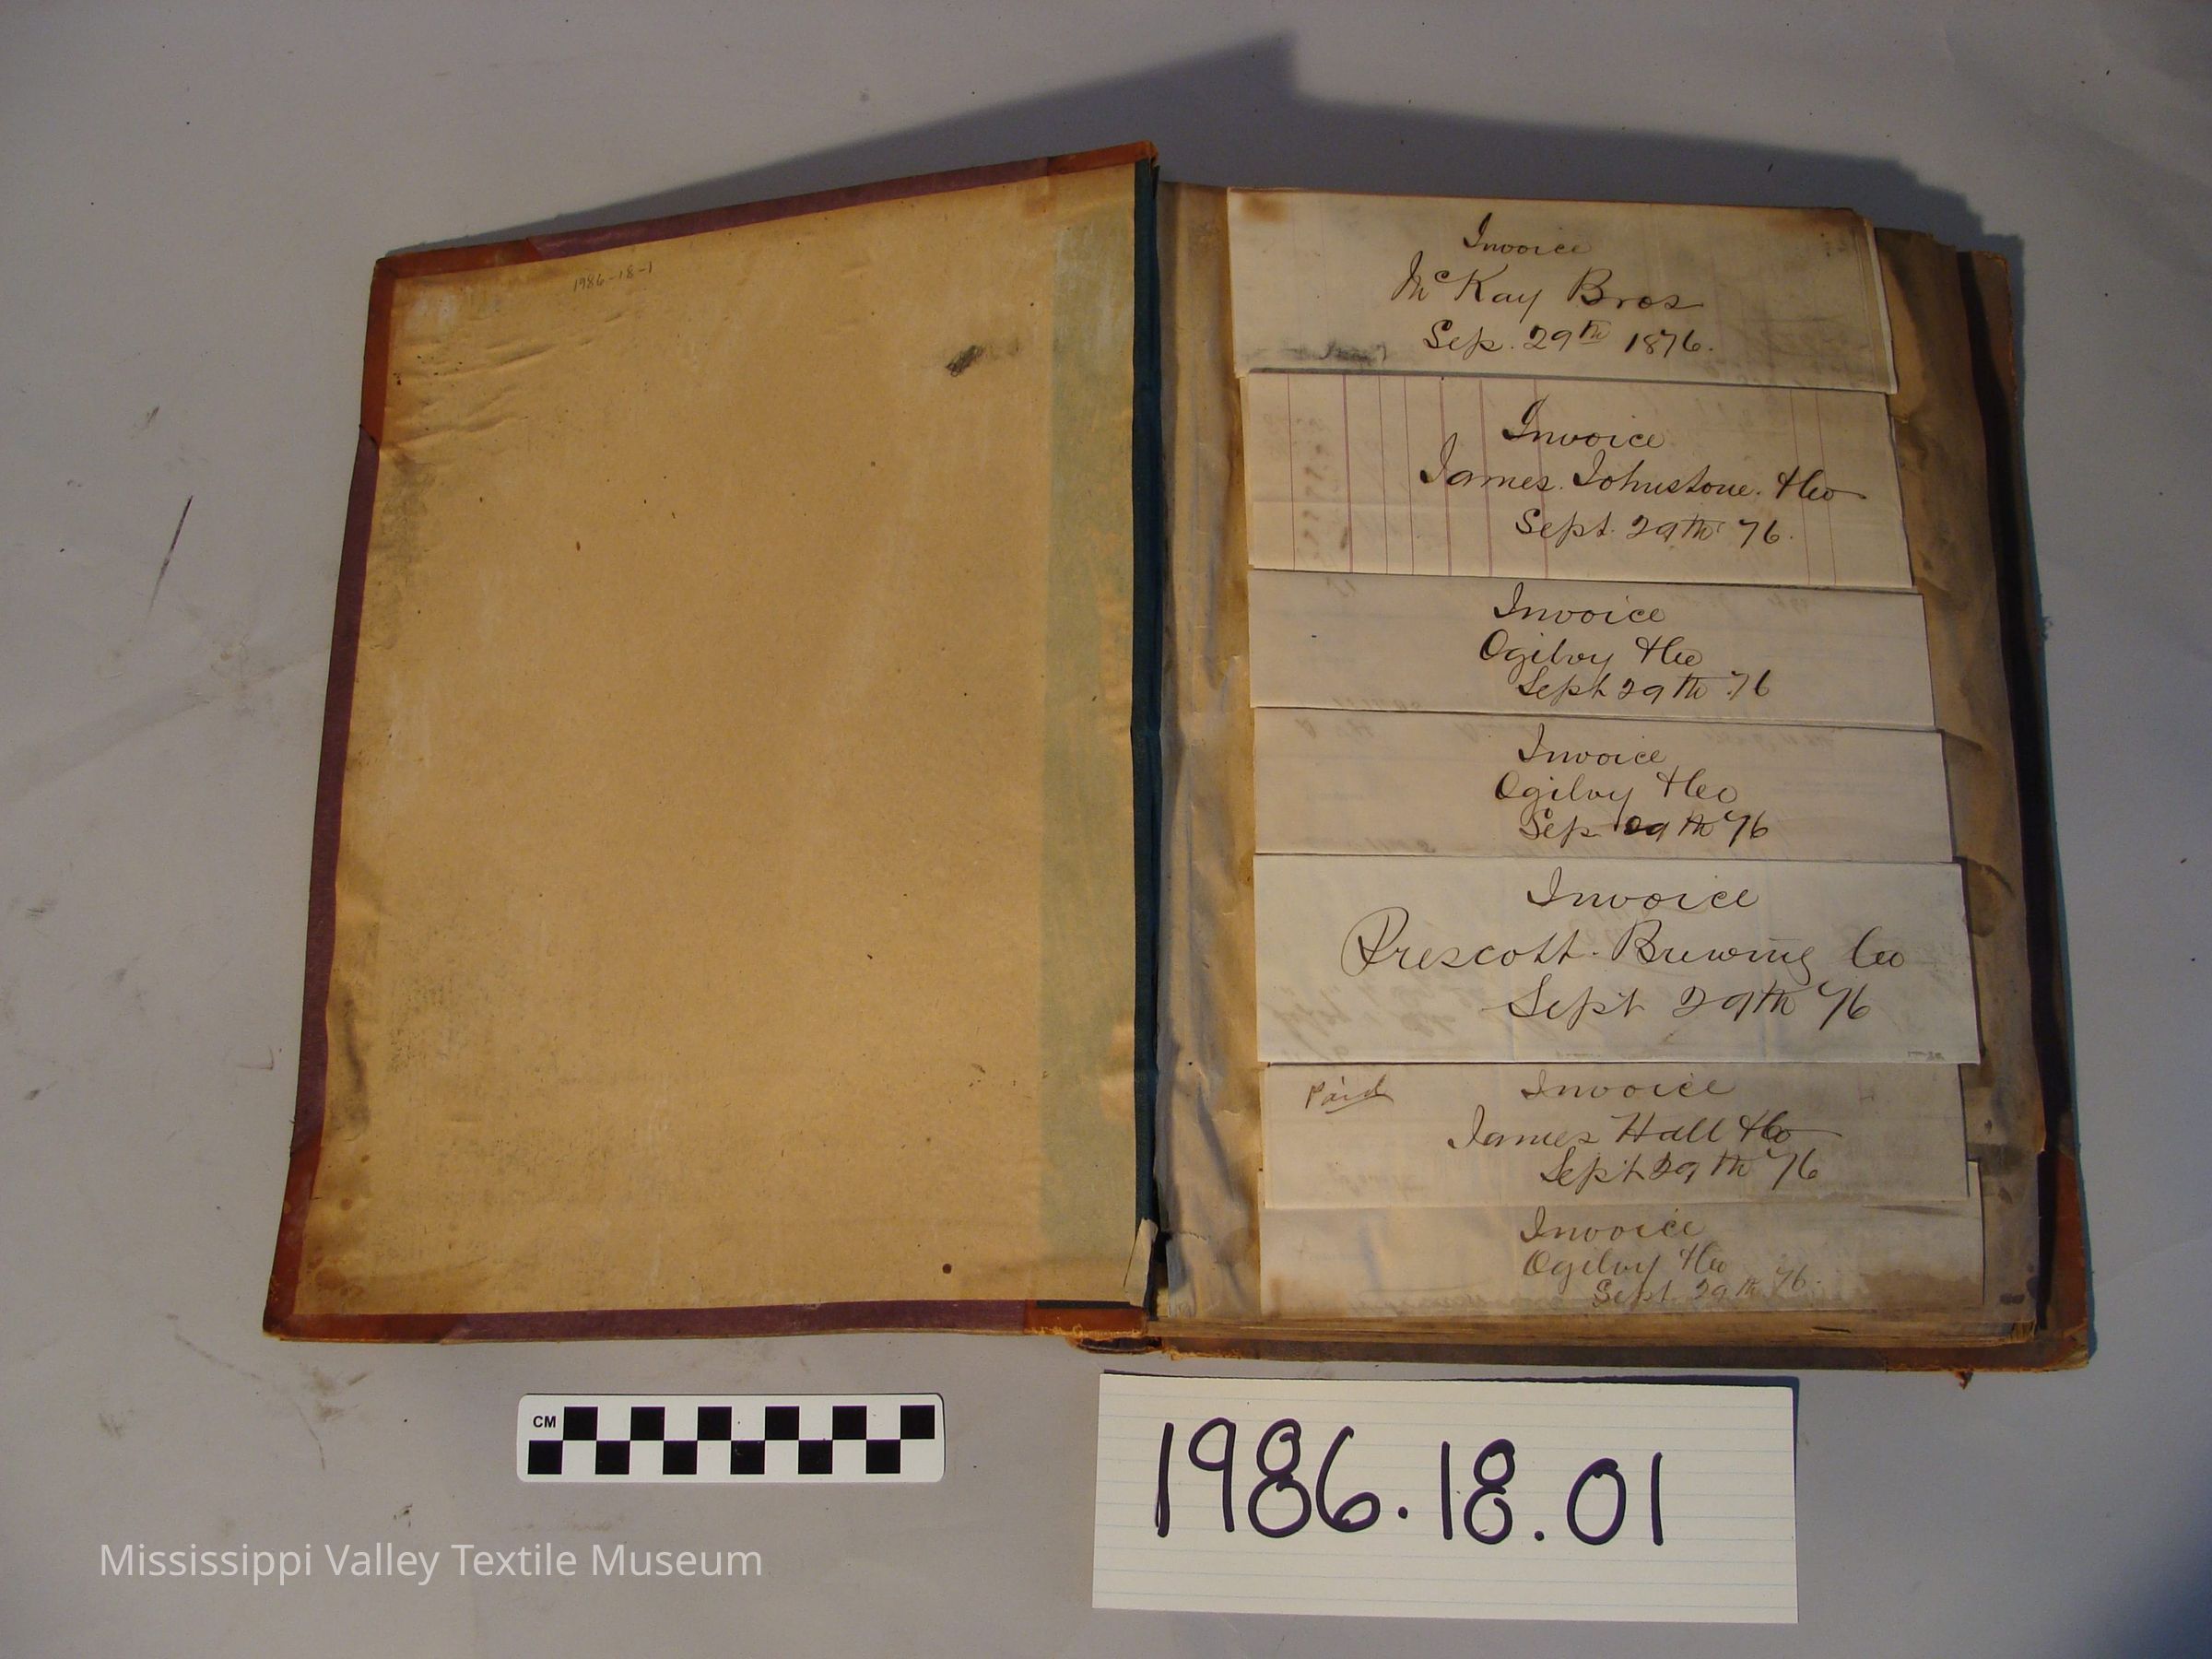 1986-18-1
Invoice
McKay Bros
Sep. 29th 1876.
Invoice
James. Johnstone. & Co
Sept. 29th 76.
Invoice
Ogilvy & Co
Sept 29th 76
Invoice
Ogilvy & Co
Sep 29th 76
Invoice
Prescott. Brewing Co
Sept 29th 76
Paid
Invoice
James Hall & Co
Sept 29th 76
Invoice
Ogilvy & Co
Sept 29th 76.
CM
1986.18.01
Mississippi Valley Textile Museum